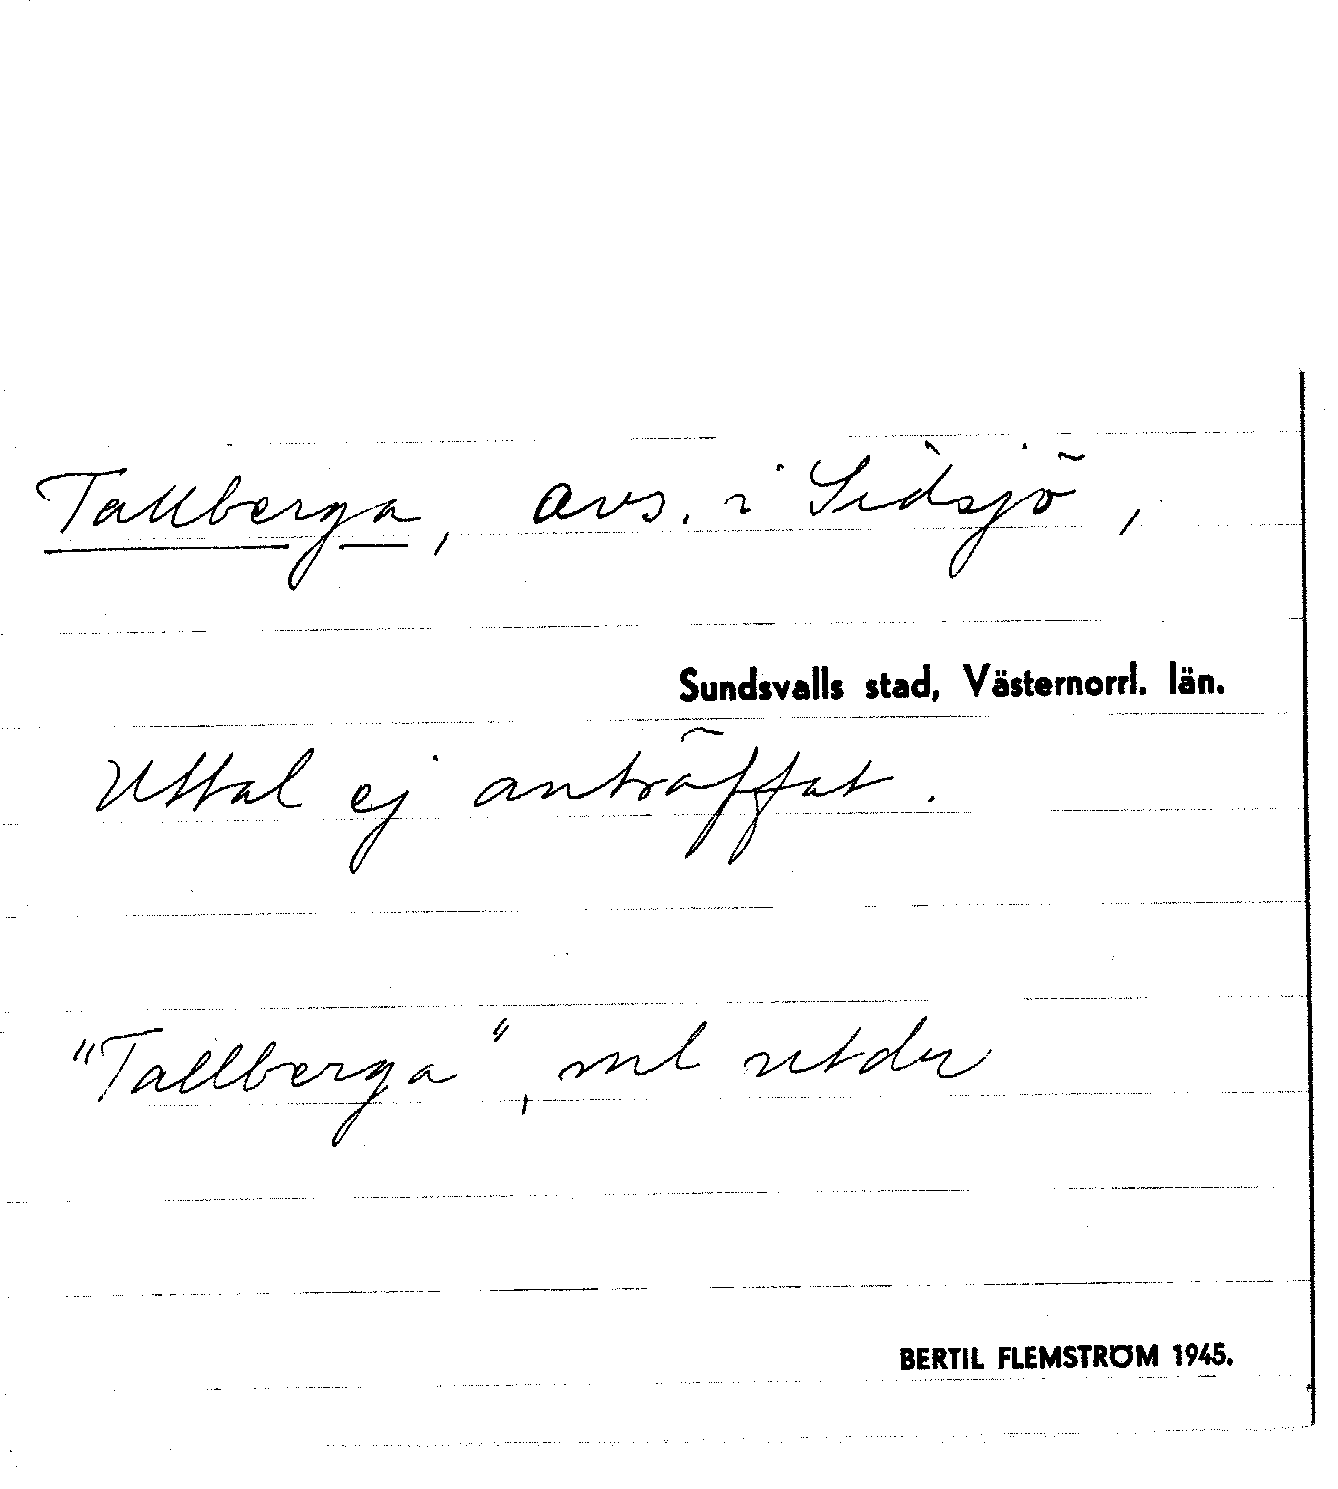 Tallberga, avs. i Sidsjö,
Sundsvalls stad, Västernorrl. län.
Uttal ej anträffat.
"Tallberga", enl
BERTIL FLEMSTRÖM 1945.